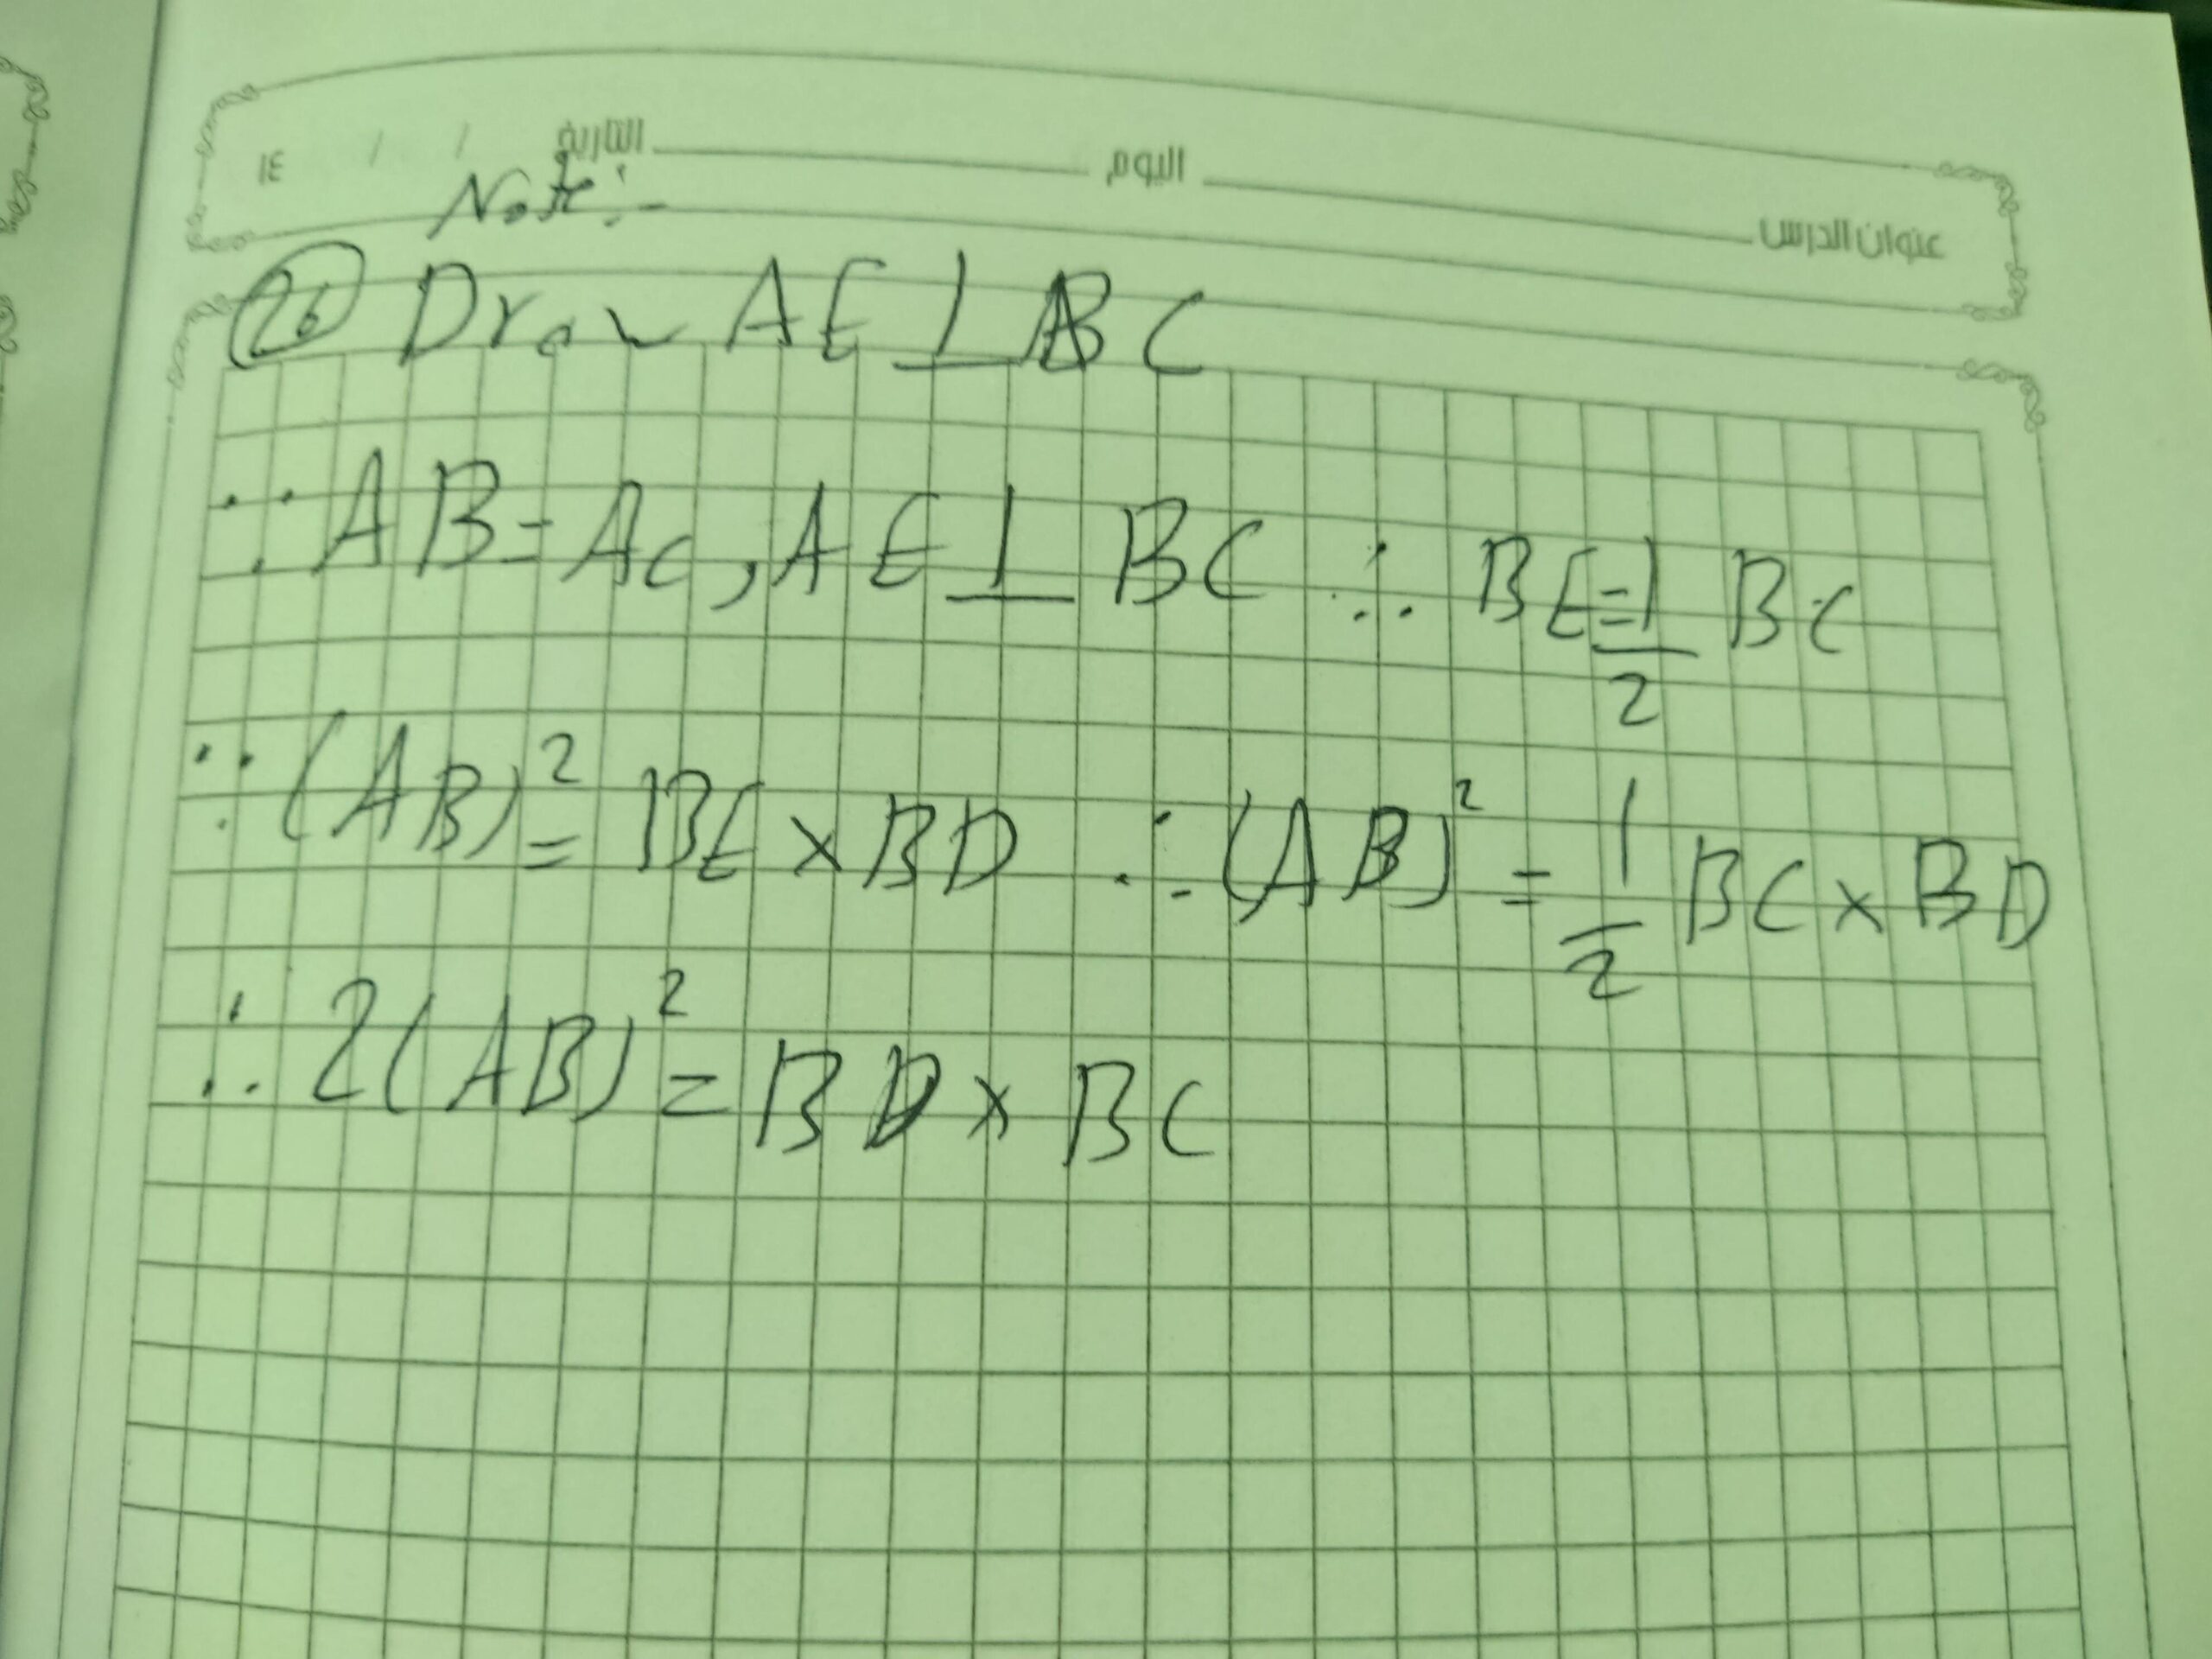 التاريخ / / ١٤ اليوم
Note:-
عنوان الدرس
26 Draw AE ⊥ BC
∵ AB = AC, AE ⊥ BC ∴ BE = 1/2 BC
∵ (AB)² = BE × BD ∴ (AB)² = 1/2 BC × BD
∴ 2(AB)² = BD × BC